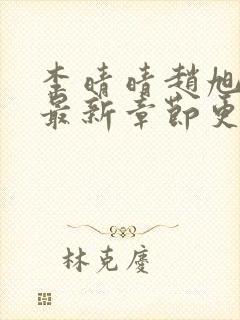 李晴晴趙旭
最新章節更
林克慶